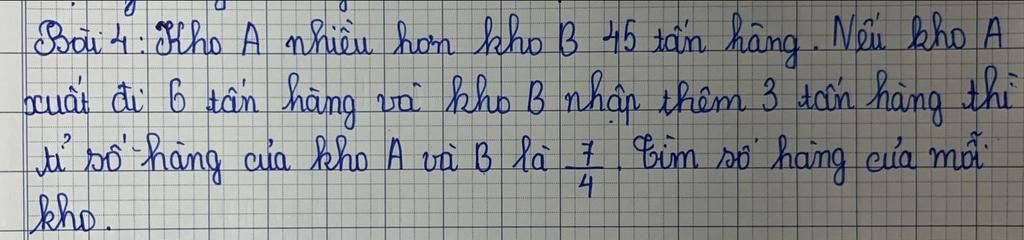 Bài 4: Kho A nhiều hơn kho B 45 tấn hàng. Nếu kho A
xuất đi 6 tấn hàng và kho B nhập thêm 3 tấn hàng thì
tỉ số hàng của kho A và B là 7/4. Tìm số hàng của mỗi
kho.